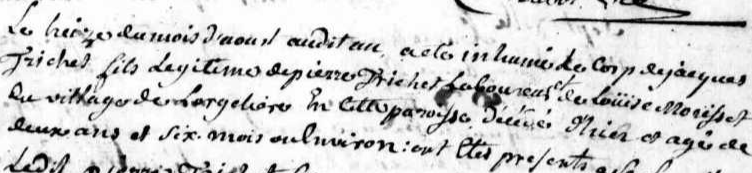 Le treize du mois d'aoust audit an a eté inhumé le Corp de jacques
Trichet fils Legitime de pierre Trichet Laboureur et de Loüise Morisset
du village de Lorgeliere En Cette paroisse décédé Ñier et agé de
deux ans et six mois ou Environ : ont Etés presents
Ledit pierre Trichet